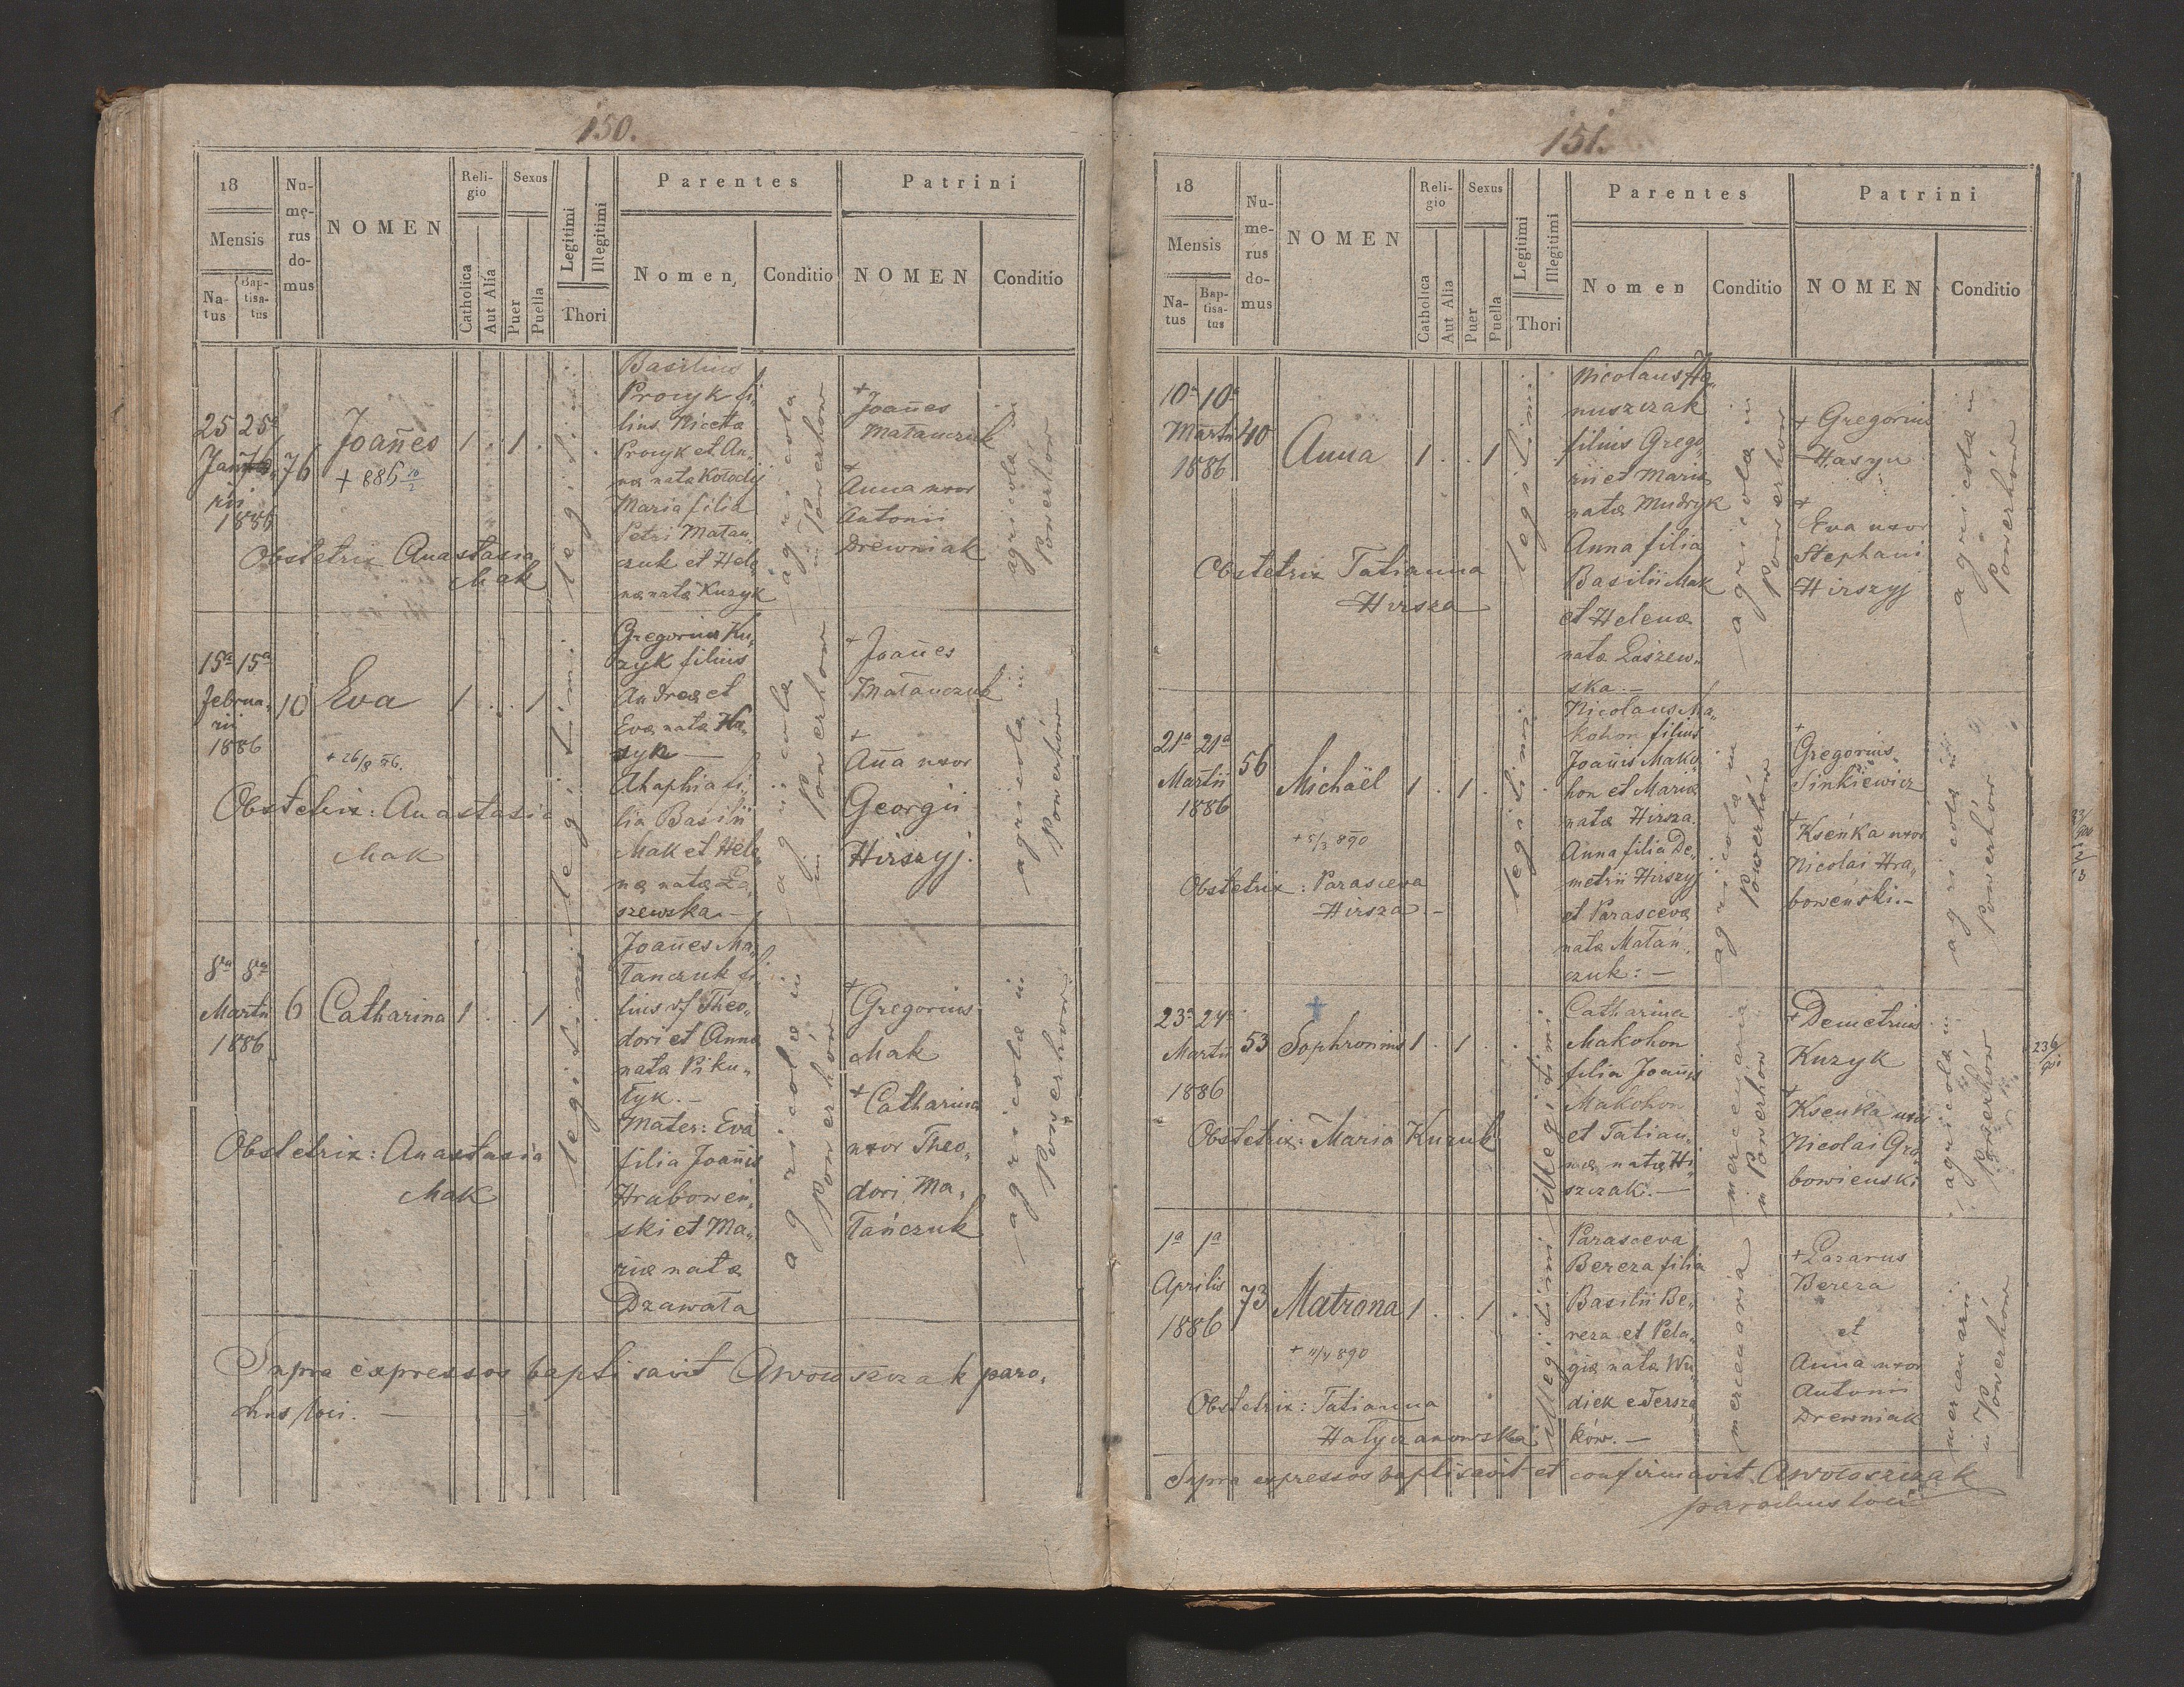 150.
18
Mensis
Na-
tus
Bap-
tisa-
tus
Nu-
me-
rus
do-
mus
NOMEN
Reli-
gio
Catholica
Aut Alia
Sexus
Puer
Puella
Legitimi
Illegitimi
Thori
Parentes
Nomen
Conditio
Patrini
NOMEN
Conditio
25 25a
Janua
rii
1886
76
Joañes
+ 886 10/2
1 . 1 .
legitimi
Basilius
Procyk fi„
lius Niceta
Procyk et An„
na nata Kołodij
Maria filia
Petri Matan„
czuk et Hele„
na nata Kuzyk
agricola
in Powerhow
+
Joañes
Matanczuk
+
Anna uxor
Antonii
Drewniak
agricola in
Powerhów
Obstetrix Anastasia
Mak
15a 15a
Februa„
rii
1886
10
Eva
+ 26/8
1 . . 1
legitimi
Gregorius Ku„
zyk filius
Andreæ et
Eva nata Ha„
syn —
Ahaphia fi„
lia Basilii
Mak et Hele„
na nata Ła„
szewska. —
agricola
in Powerhow
+
Joañes
Matanczuk
+
Aña uxor
Georgii
Hirszyj.
agricola in
Powerhów
Obstetrix: Anastasia
Mak
8va 8va
Martii
1886
6
Catharina
1 . . 1
legitimi
Joañes Ma„
tanczuk fi„
lius Theo„
dori et Anna
nata Piku„
łyk. —
Mater: Eva
filia Joañis
Hrabowen„
ski et Ma„
riæ nata
Dzawała
agricola in
Powerhów
+
Gregorius
Mak
+ Catharina
uxor Theo„
dori Ma„
tańczuk
agricola in
Powerhow
Obstetrix: Anastasia
Mak
Supra expressos baptisavit AWołoszczak paro„
chus loci. —
151.
18
Mensis
Na-
tus
Bap-
tisa-
tus
Nu-
me-
rus
do-
mus
NOMEN
Reli-
gio
Catholica
Aut Alia
Sexus
Puer
Puella
Legitimi
Illegitimi
Thori
Parentes
Nomen
Conditio
Patrini
NOMEN
Conditio
10a 10a
Martii
1886
40
Anna
1 . . 1
legitimi
Nicolaus Ha„
nuszczak
filius Grego„
rii et Maria
nata Mudryk
Anna filia
Basilii Mak
et Helenæ
nata Łaszew„
ska. —
agricola in
Powerhow
+ Gregorius
Hasyn
+
Eva uxor
Stephani
Hirszyj
agricola in
Powerhów
Obstetrix Tatianna
Hirsza
21a 21a
Martii
1886
56
Michaël
+ 5/3 890
1 . 1 .
legitimi
Nicolaus Ma„
kohon filius
Joañis Mako„
hon et Maria
nata Hirsza.
Anna filia De„
metrii Hirszyj
et Parasceva
nata Matań„
czuk: —
agricola in
Powerhów
+
Gregorius
Sinkiewicz
+
Kseńka uxor
Nicolai Hra„
boweński. —
agricola in
Powerhów
Obstetrix: Parasceva
Hirsza —
23a 24a
Martii
1886
53
Sophronius
1 . 1 .
illegitimi
Catharina
Makohon
filia Joañis
Makohon
et Tatian„
næ nata Hi„
szczak. —
mercenaria
in Powerhów
+ Demetrius
Kuzyk
+
Ksenka uxor
Nicolai Gra„
bowienski
agricola in
Powerhów
Obstetrix: Maria Kuzyk
1a 1a
Aprilis
1886
73
Matrona
+ 11/4 890
1 . . 1
illegitimi
Parasceva
Bereza filia
Basilii Be„
reza et Pela„
gia nata Wu„
diek e Tersza„
ków. —
mercenaria
+ Lazarus
Bereza
et
Anna uxor
Antonii
Drewniak
mercenarii
in Powerhów
Obstetrix: Tatianna
Hałyczanowska
Supra expressos baptisavit et confirmavit AWołoszczak
parochus loci